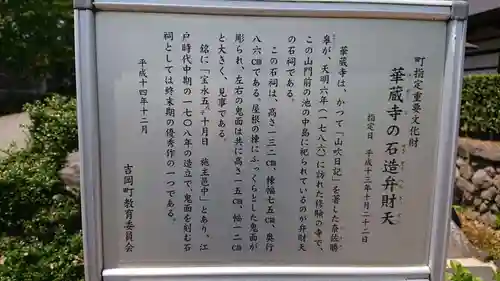 町指定重要文化財
華蔵寺の石造弁財天
指定日　平成十三年十月二十二日
華蔵寺は、かつて「山吹日記」を著した奈佐勝
皋が、天明六年（一七八六）に訪れた修験の寺で、
この山門前の池の中島に祀られているのが弁財天
の石祠である。
この石祠は、高さ一三二㎝、棟幅七五㎝、奥行
八六㎝である。屋根の棟にふっくらとした鬼面が
彫られ、左右の鬼面は共に高さ二五㎝、幅一二㎝
と大きく、見事である。
銘に「宝永五十月日　施主邑中」とあり、江
戸時代中期の一七〇八年の造立で、鬼面を刻む石
祠としては終末期の優秀作の一つである。
平成十四年十二月
吉岡町教育委員会